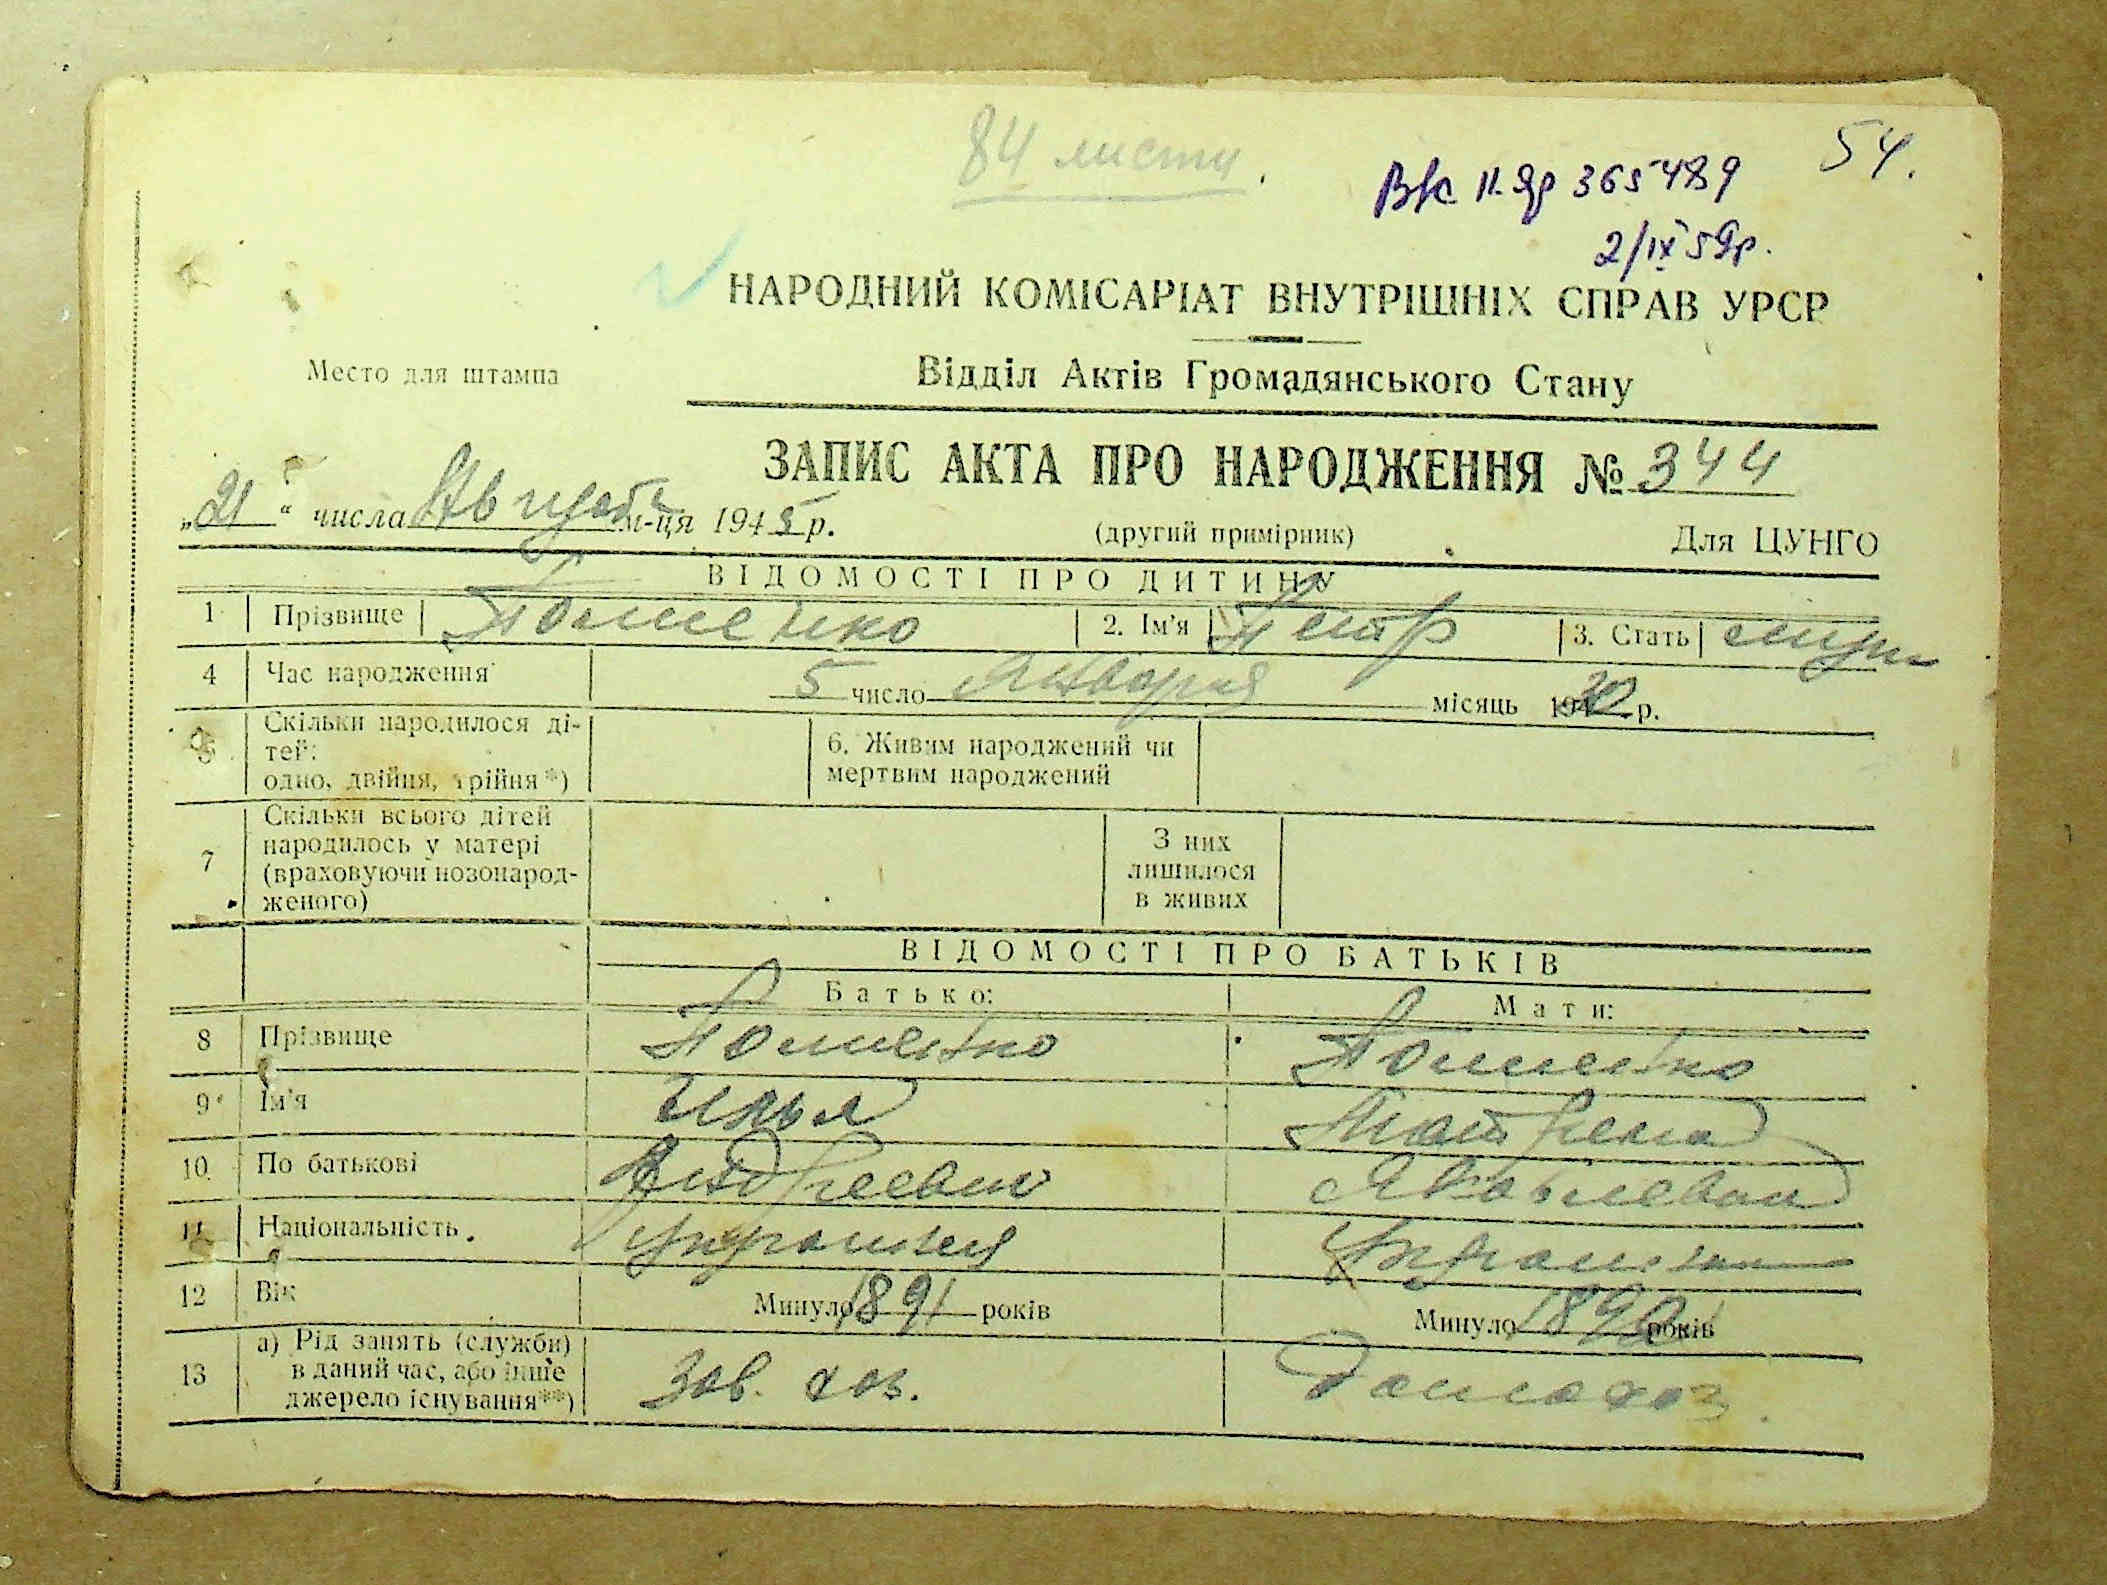 84 листи.
54.
Вк ІІ. Яр 365489
2/ІХ 59р.
НАРОДНИЙ КОМІСАРІАТ ВНУТРІШНІХ СПРАВ УРСР
Место для штампа
Відділ Актів Громадянського Стану
ЗАПИС АКТА ПРО НАРОДЖЕННЯ № 344
„21“ числа Августа м-ця 1945 р.
(другий примірник) Для ЦУНГО
ВІДОМОСТІ ПРО ДИТИНУ
1 Прізвище Поменко 2. Ім'я Петр 3. Стать муж
4 Час народження 5 число Января місяць 1930 р.
5 Скільки народилося ді-
тей:
одно, двійня, трійня*)
6. Живим народжений чи
мертвим народжений
7 Скільки всього дітей
народилось у матері
(враховуючи новонарод-
женого)
З них
лишилося
в живих
ВІДОМОСТІ ПРО БАТЬКІВ
Батько: Мати:
8 Прізвище Поменко Поменко
9 Ім'я Илья Матрена
10 По батькові Андреевич Яковлевна
11 Національність. Украинец Украинка
12 Вік Минуло 1891 років Минуло 1890 років
13 а) Рід занять (служби)
в даний час, або інше
джерело існування**)
Зав. хоз. Домохоз.